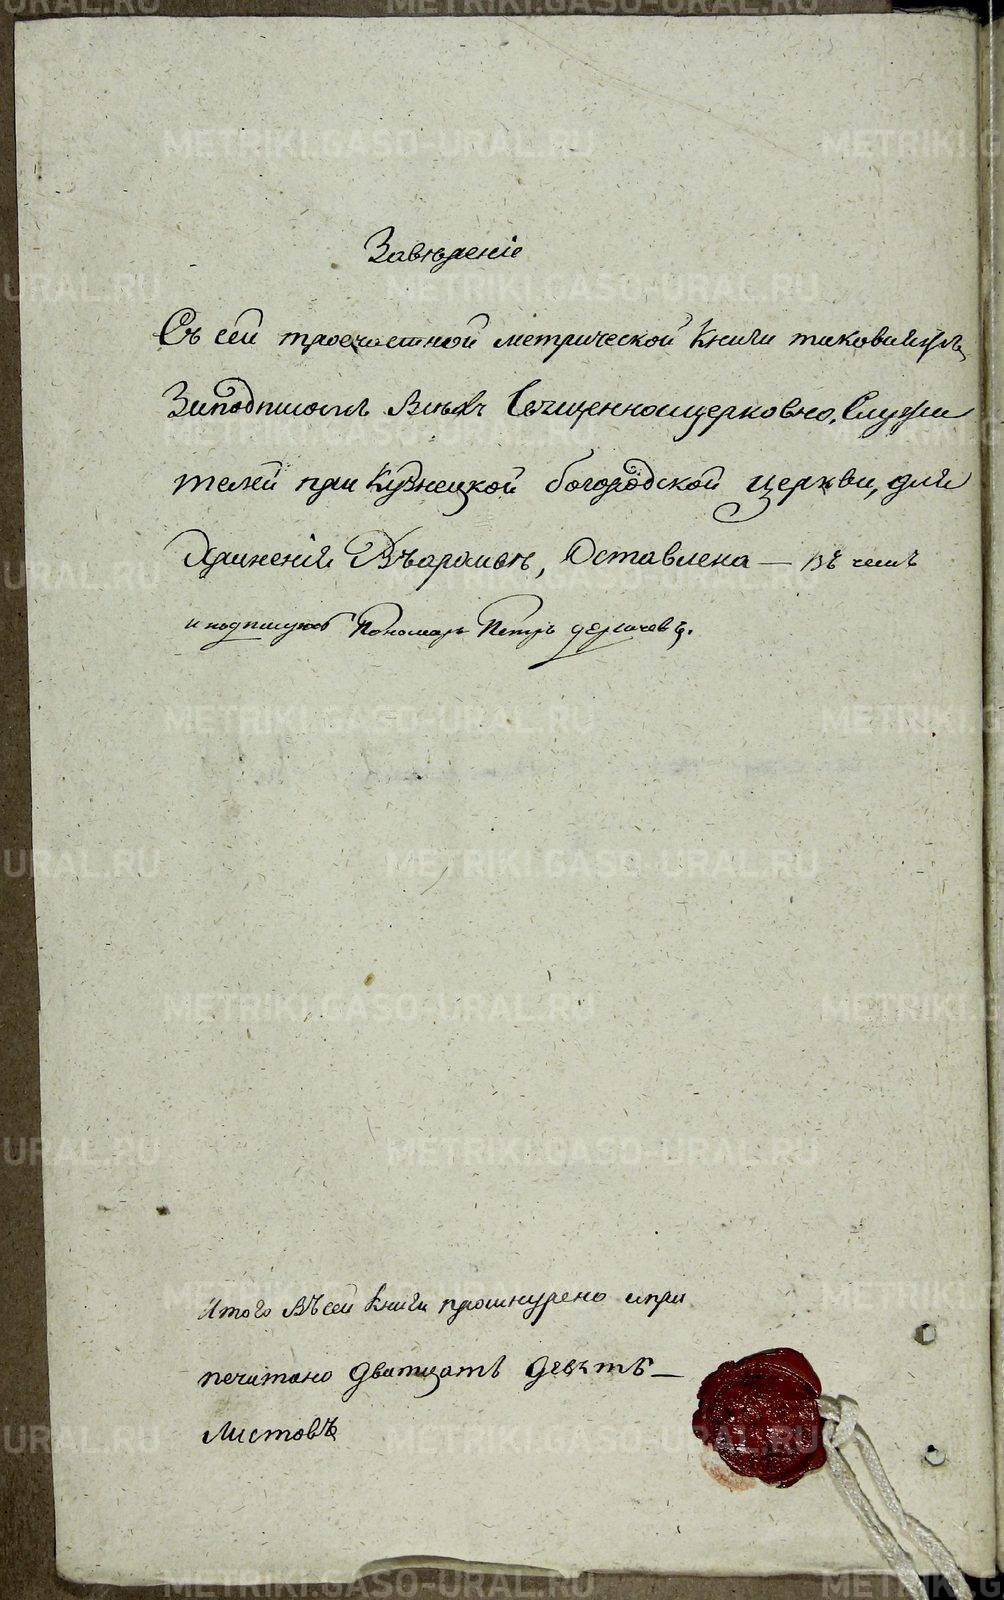 Заведеніе
Съ сей троечастной метрической Книги таковая
Заподписомъ Всехъ Священноицерковно, Служи
телей при Кузнецкой богородской церкви, для
Храненія Въ, Оставлена — въ чемъ
и подписуюсь Пономарь Петръ дерачевъ.
Итого Въсей Книги прошнурено ипри
печатано дватцать девять —
Листовъ
METRIKI.GASO-URAL.RU